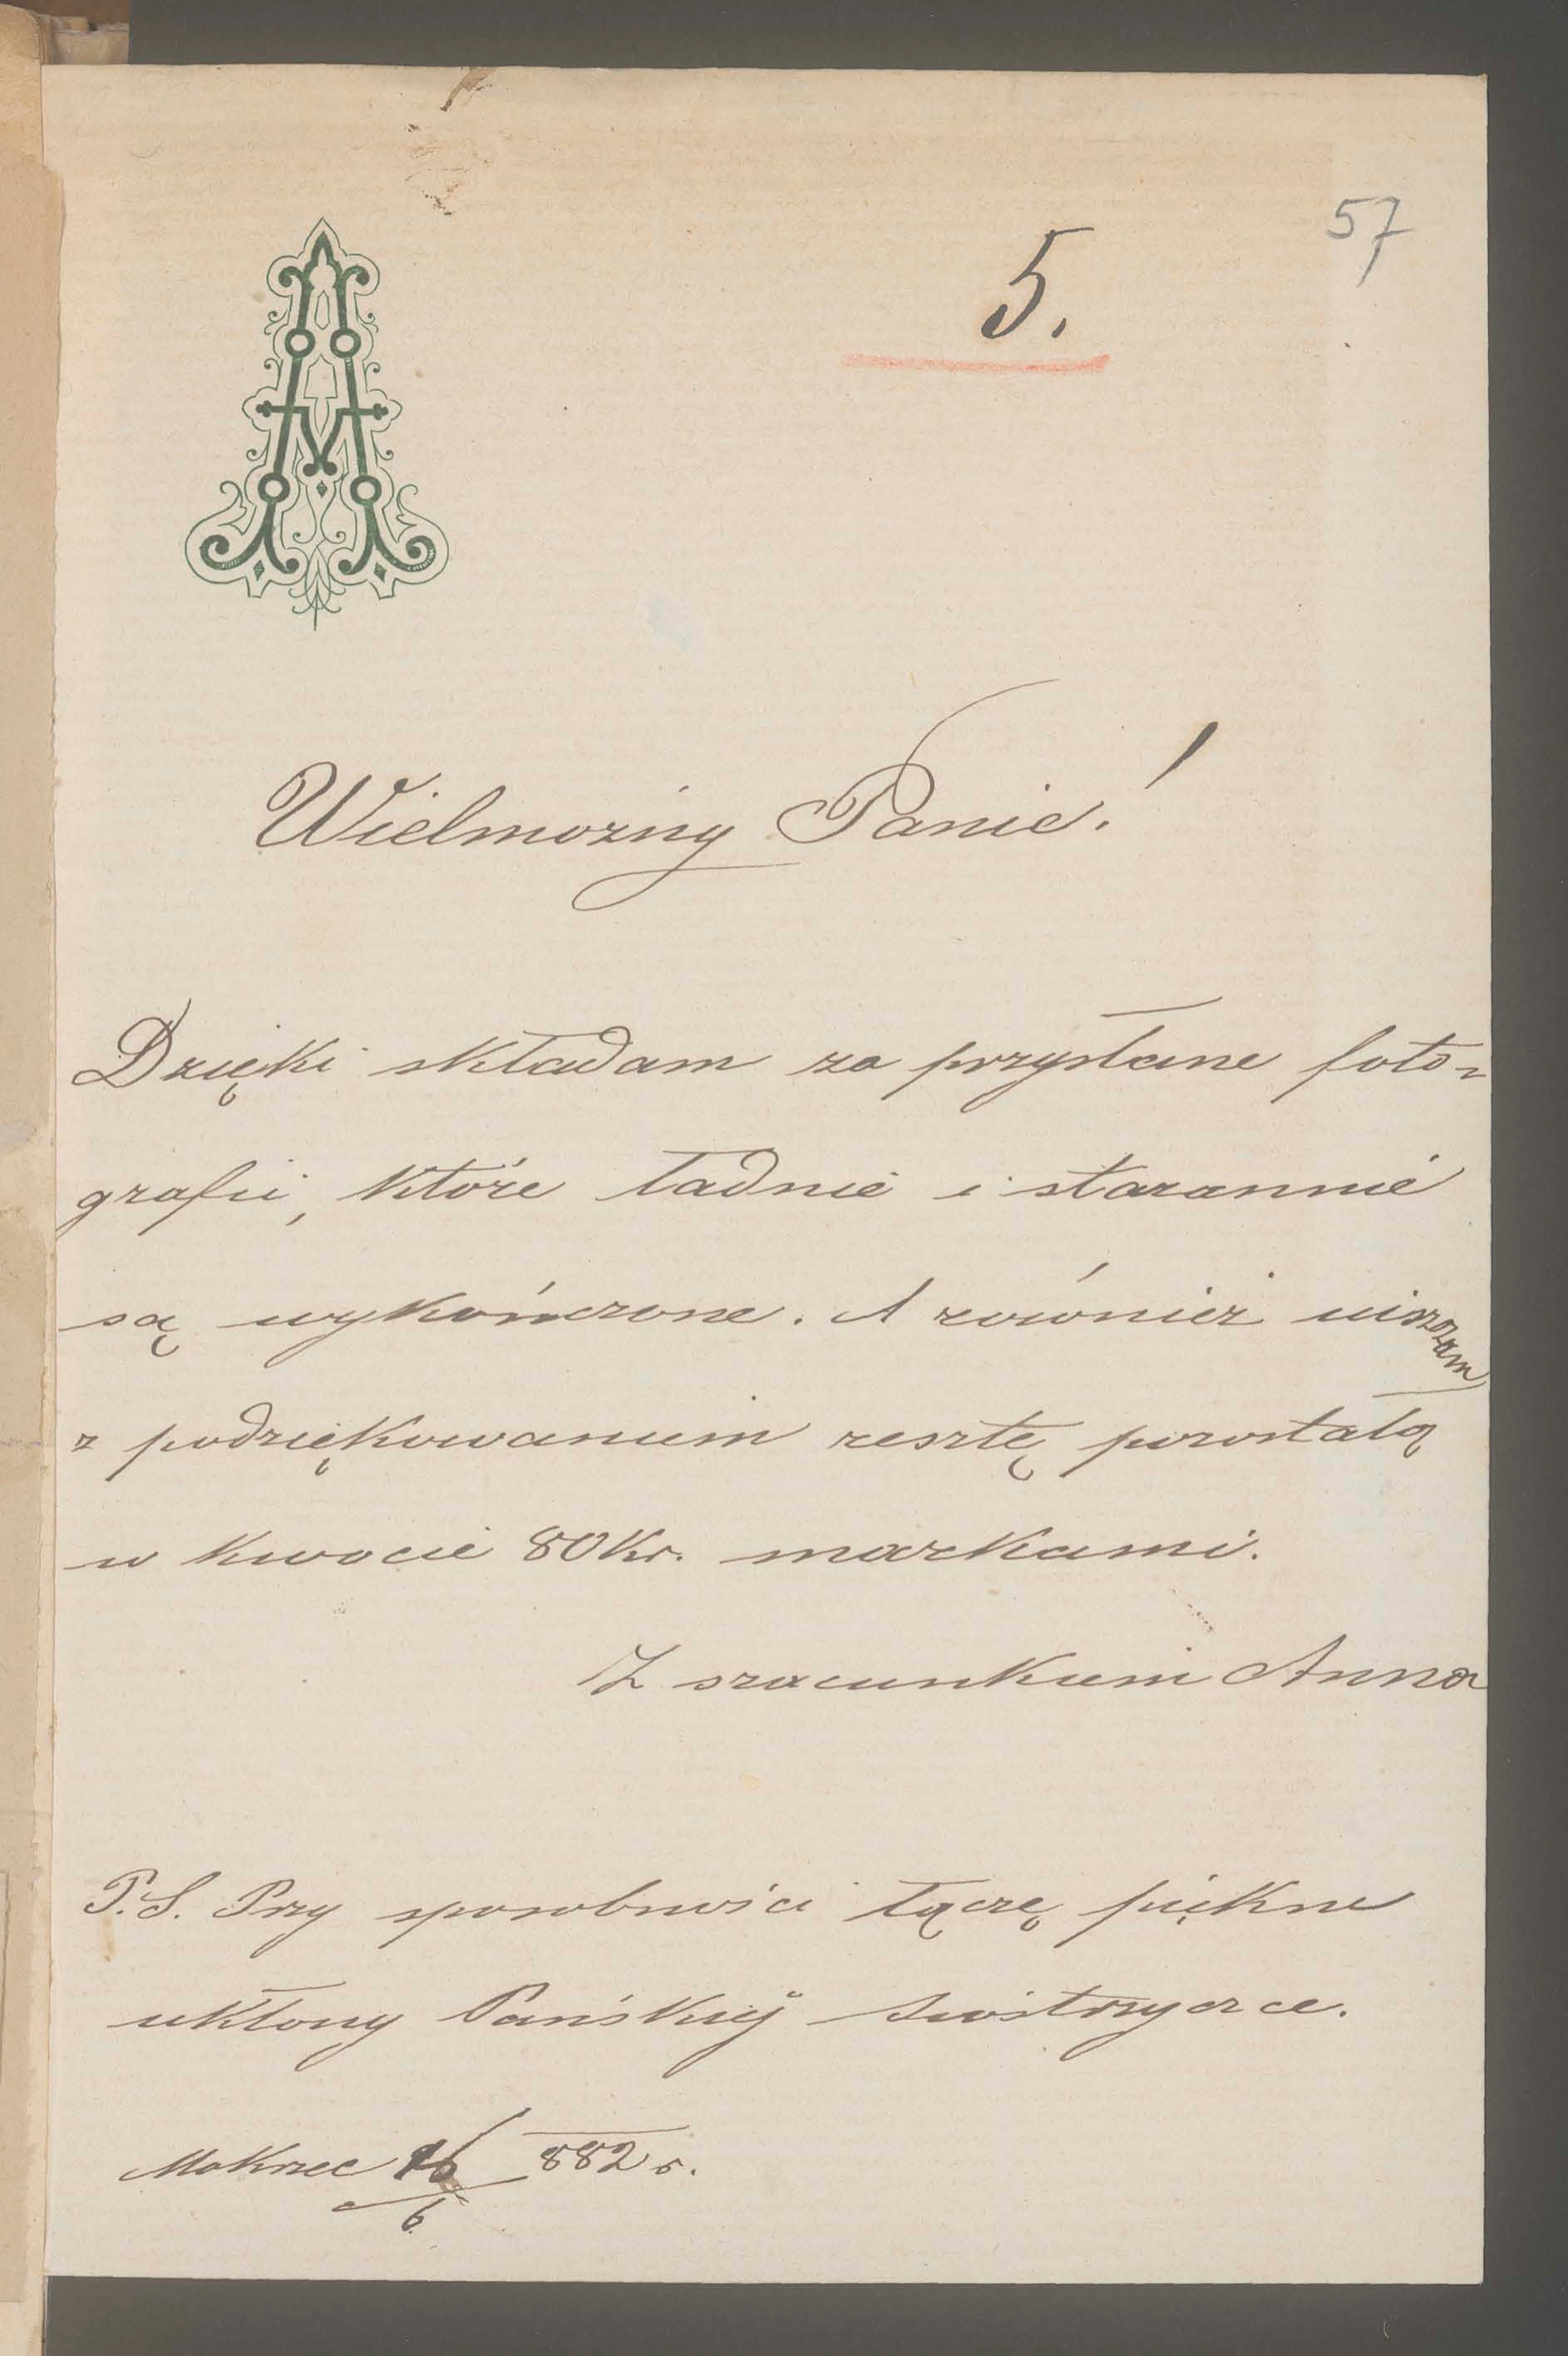 57
5.
Wielmożny Panie!
Dzięki składam za przysłane foto-
grafii, które ładnie i starannie
są wykończone. A również uiszczam
z podziękowaniem resztę pozostałą
w kwocie 80 Kr. markami.
Z szacunkiem Anna
P.S. Przy sposobności łączę piękne
ukłony Pańskiéj siostrzyczce.
Mokrzec 16/6 882 r.